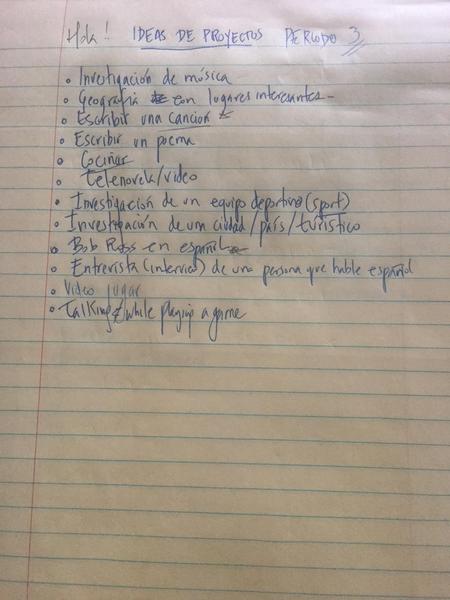 Hola! IDEAS DE PROYECTOS PERIODO 3
• Investigación de música
• Geografía con lugares interesantes
• Escribir una canción
• Escribir un poema
• Cocinar
• Telenovela/video
• Investigación de un equipo deportivo (sport)
• Investigación de una ciudad/país/turístico
• Bob Ross en español
• Entrevista (interview) de una persona que hable español
• Video jugar
• Talking while playing a game